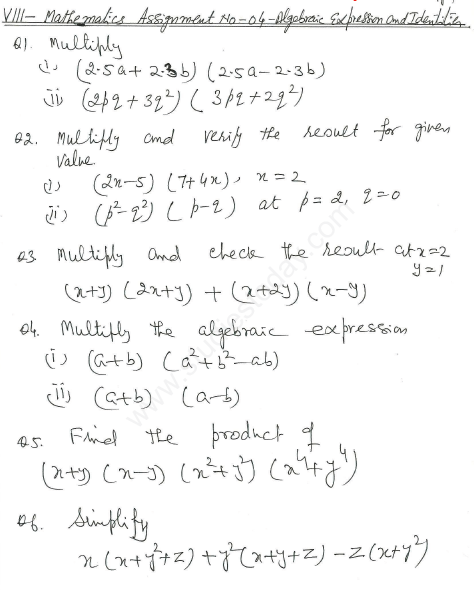 VIII- Mathematics Assignment No-04-Algebraic Expression and Identities
Q1. Multiply
(i) (2.5a + 2.3b) (2.5a - 2.3b)
(ii) (2pq + 3q²) (3pq + 2q²)
Q2. Multiply and verify the result for given
Value.
(i) (2x-5) (7+4x), x = 2
(ii) (p²-q²) (p-q) at p = 2, q = 0
Q3 Multiply and check the result at x=2
y=1
(x+y) (2x+y) + (x+2y) (x-y)
Q4. Multiply the algebraic expression
(i) (a+b) (a²+b²-ab)
(ii) (a+b) (a-b)
Q5. Find the product of
(x+y) (x-y) (x²+y²) (x⁴+y⁴)
Q6. Simplify
x(x+y²+z)+y²(x+y+z)-z(x+y²)